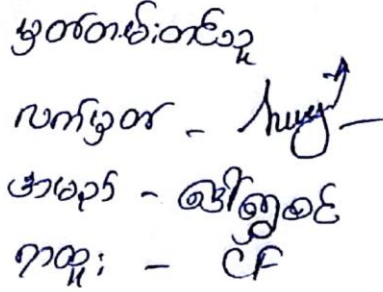 မှတ်တမ်းတင်သူ
လက်မှတ် -
အမည် - ဒေါ်ရွှေစင်
ရာထူး - CF